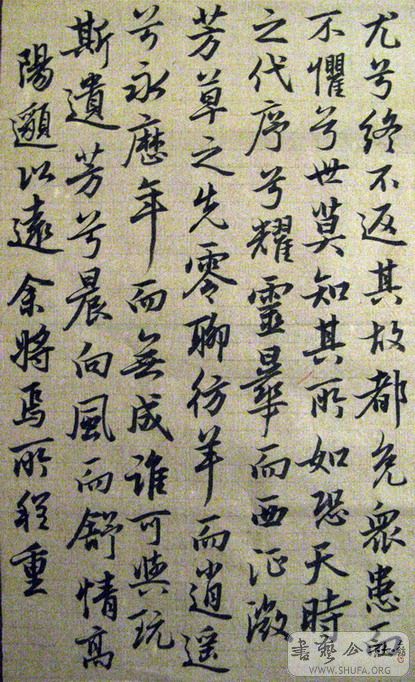 尤兮終不返其故都免眾患而
不懼兮世莫知其所如恐天時
之代序兮耀靈曅而西征微
芳草之先零聊彷羊而逍遥
兮永歷年而無成誰可與玩
斯遺芳兮晨向風而舒情高
陽邈以遠余將焉所程重
書藝公社
WWW.SHUFA.ORG